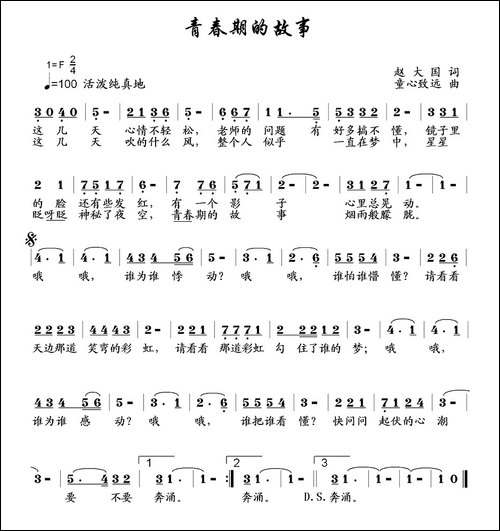 青春期的故事
1=F 2/4
♩=100 活泼纯真地
赵大国 词
童心致远 曲
3 0 4 0 | 5 - | 2 1 3 6 | 5 - | 6 6 7 | 1 1 · 5 | 5 3 3 2 | 2 - | 6 6 7
这 几 天 心情不轻 松, 老师的 问题 有 好多搞不 懂, 镜子里
这 几 天 吹的什么 风, 整个人 似乎 一直在梦 中, 星星
2 1 | 7 5 1 7 | 6 - | 7 7 6 | 5 7 1 | 2 - | 2 - | 7 2 2 1 | 1 -
的 脸 还有些发 红, 有 一个 影 子 心里总晃 动。
眨呀眨 神秘了夜 空, 青春期的 故 事 烟雨般朦 胧。
4 · 1 | 4 · 1 | 4 3 4 5 6 | 5 - | 3 · 1 | 2 · 6 | 5 5 5 4 | 3 - | 1 2 3
哦 哦, 谁为谁 悸 动? 哦 哦, 谁怕谁懵 懂? 请看看
2 2 2 3 | 4 4 4 3 | 2 - | 1 2 2 | 7 7 7 1 | 2 · 5 | 5 5 5 4 | 3 - | 4 · 1 | 4 · 1
天边那道 笑弯的彩 虹, 请看看 那道彩虹 勾 住了谁的 梦; 哦 哦,
4 3 4 5 6 | 5 - | 3 · 1 | 2 · 6 | 5 5 5 4 | 3 - | 2 2 1 | 7 1 2 1 | 5 4
谁为谁 感 动? 哦 哦, 谁把谁看 懂? 快问问 起伏的心 潮
3 - | 5 · 4 | 3 3 2 | 1 3 1 | 1 - :| 2 3 1 | 1 - | 3 3 1 | 1 - | 1 0 ‖
要 不要 奔涌。 奔涌。 D.S.奔涌。